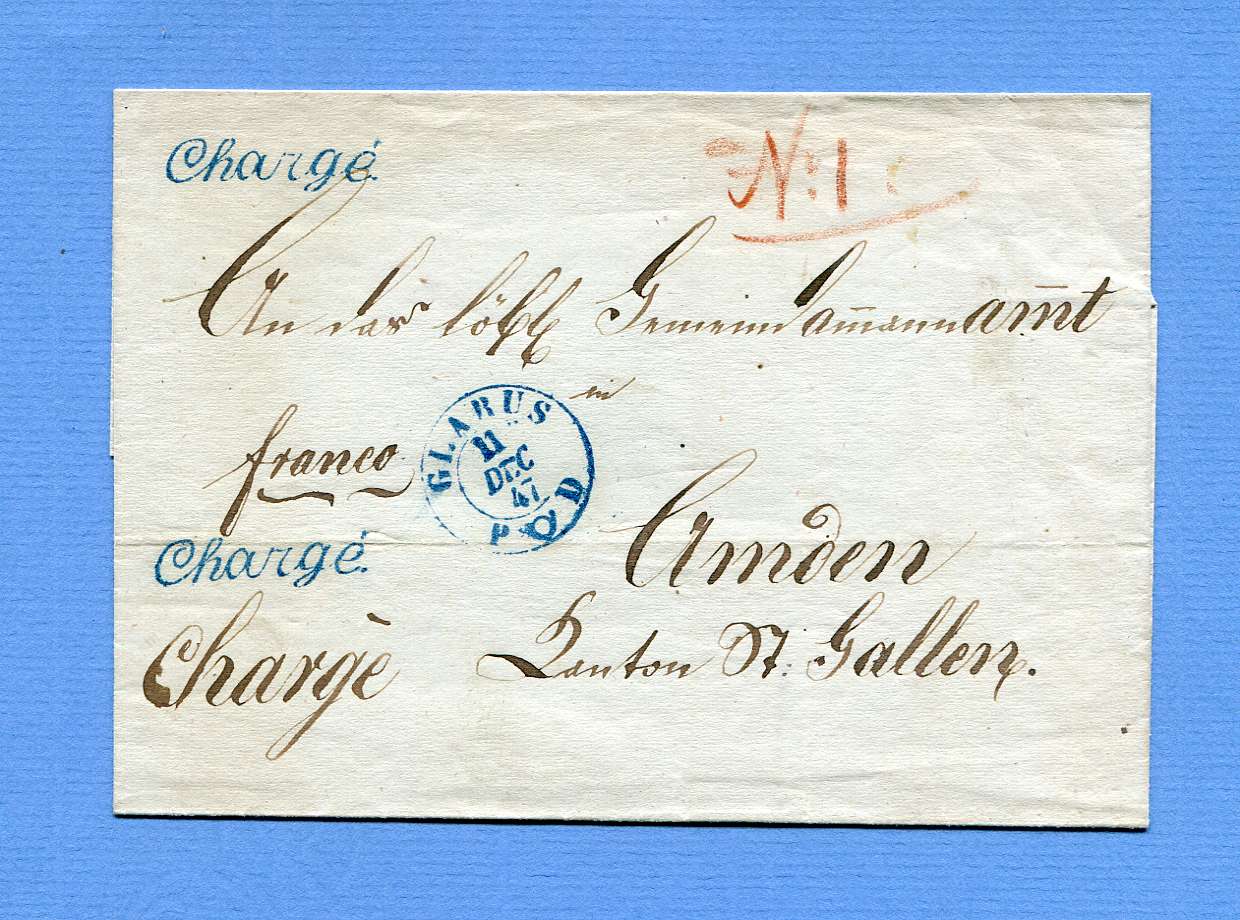 Chargé.
N: 1
An das löbl Gemeindammannamt
in
franco
GLARUS
11
DEC
47
P D
Amden
Chargé.
Chargè
Kanton St. Gallen.